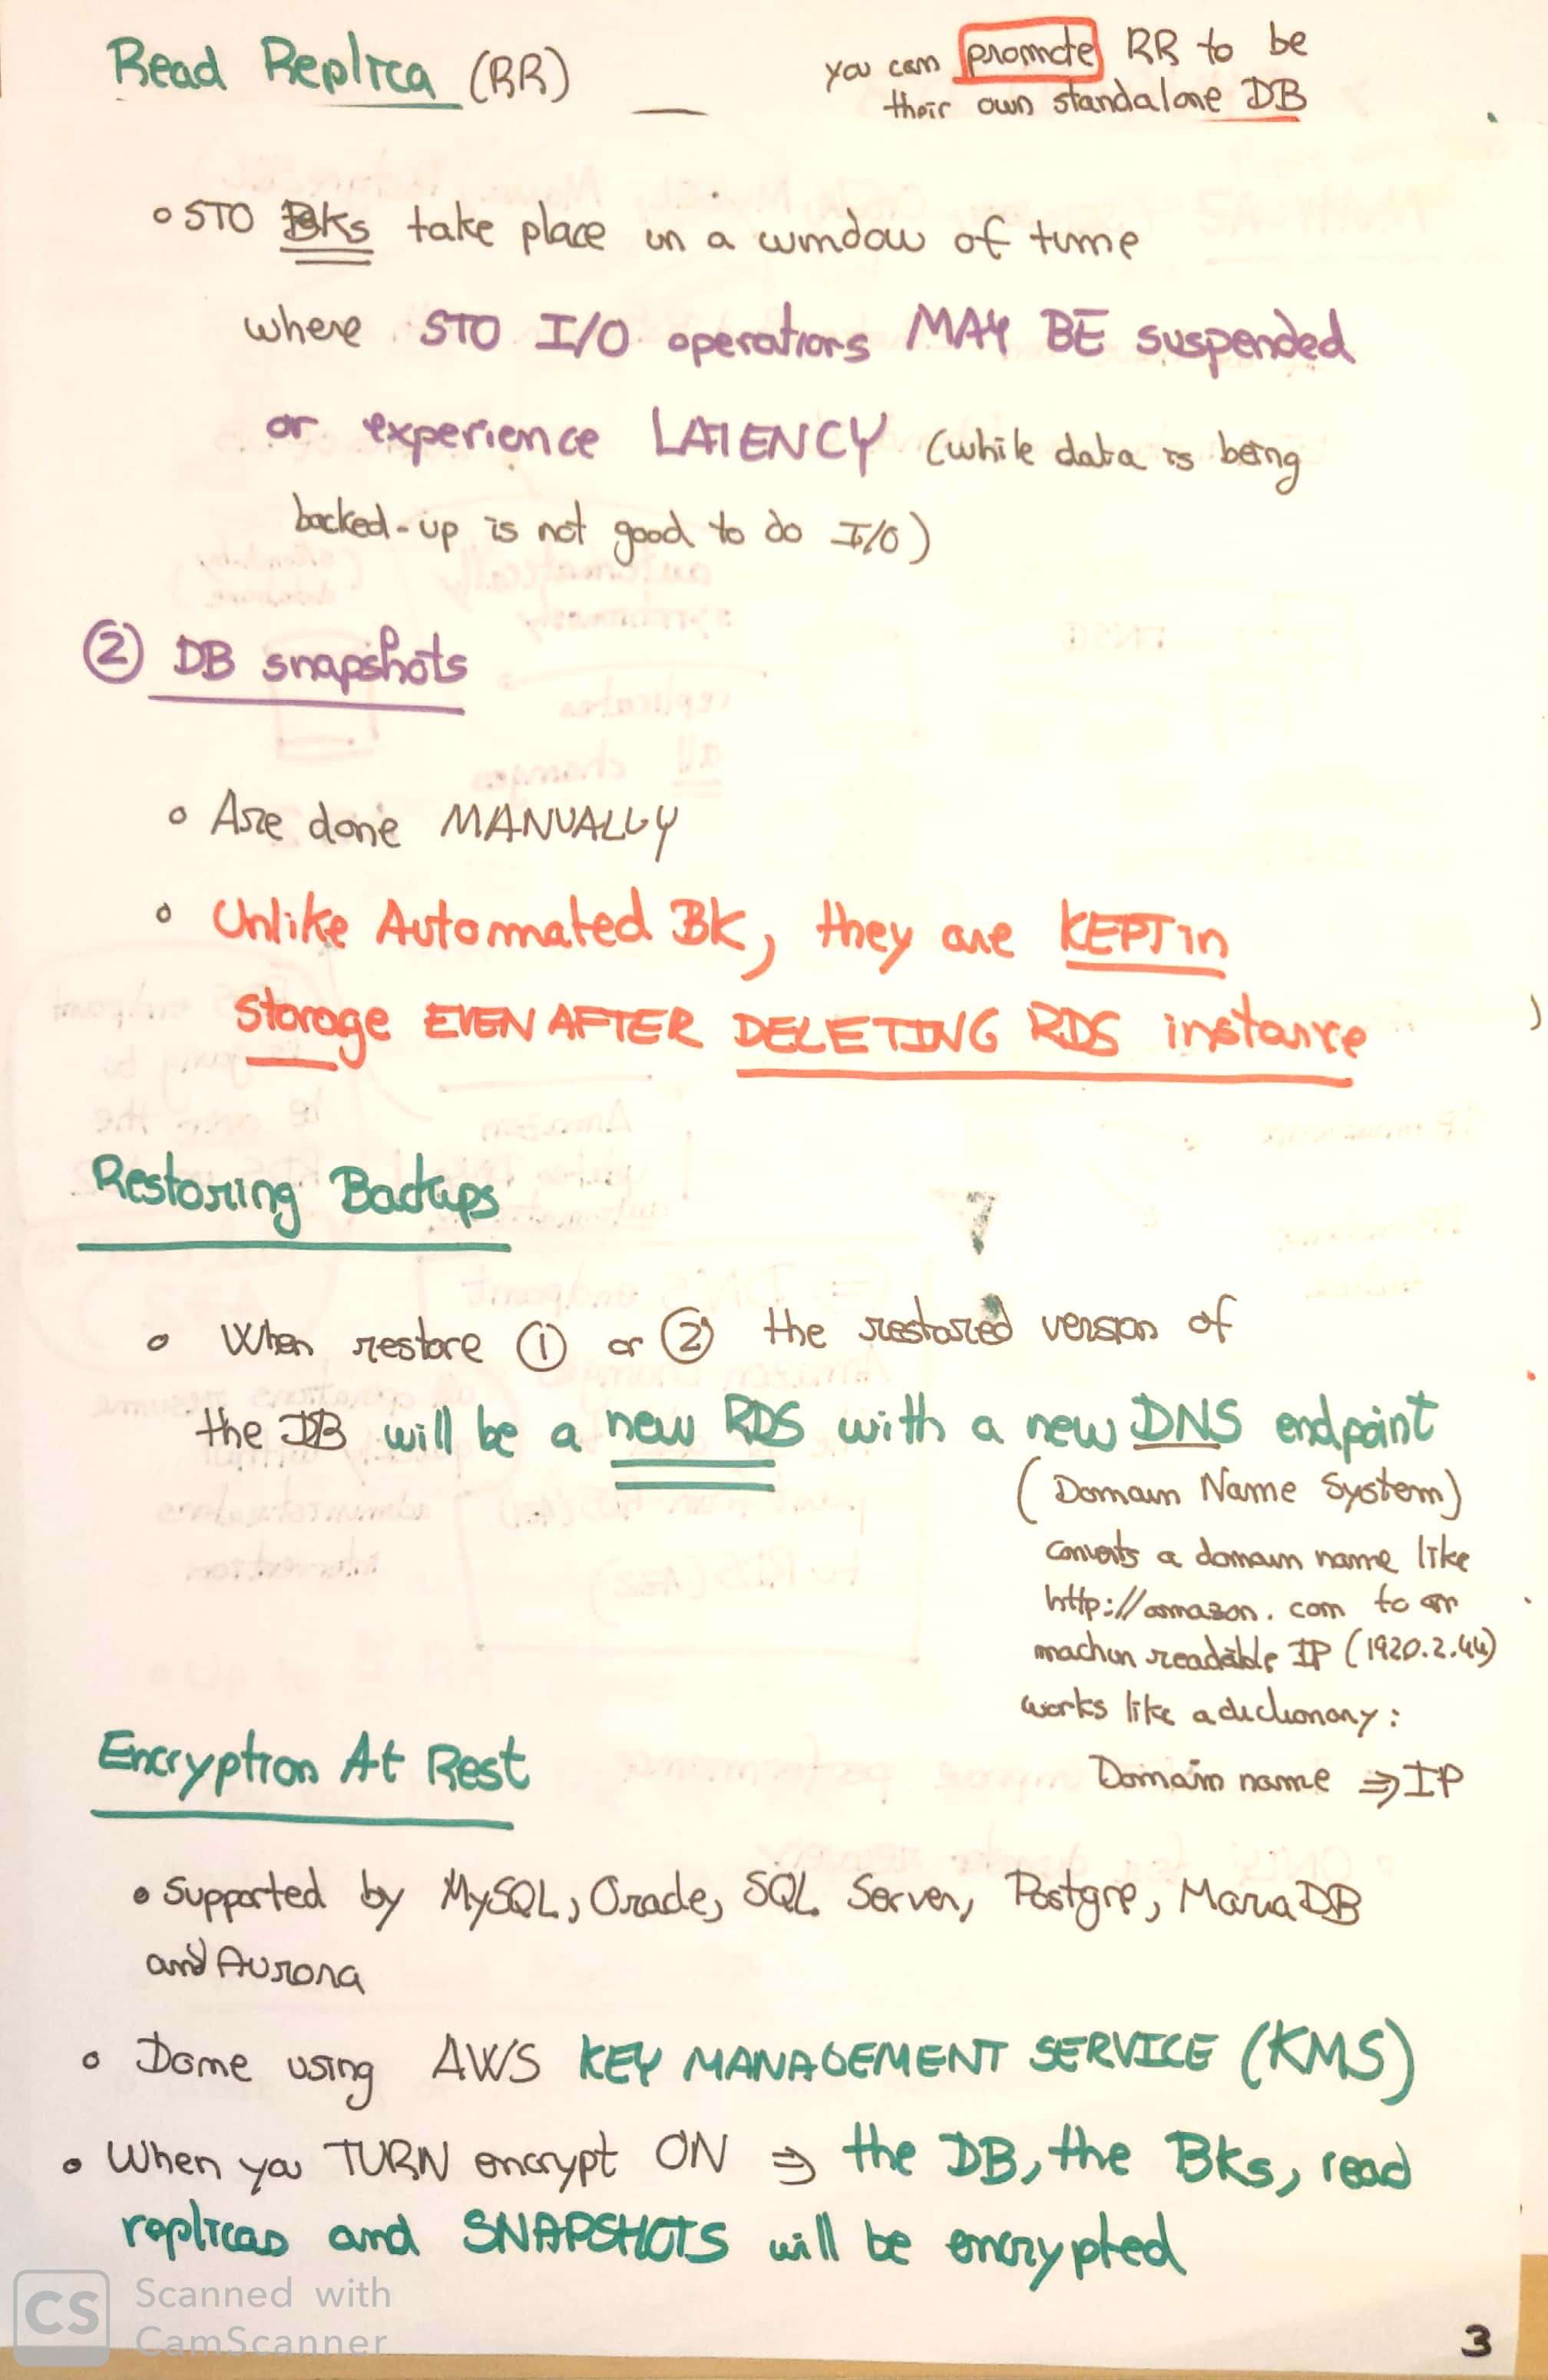 Read Replica (RR) —
you can promote RR to be
their own standalone DB
° STO BKs take place in a window of time
where STO I/O operations MAY BE suspended
or experience LATENCY (while data is being
backed-up is not good to do I/O)
② DB snapshots
° Are done MANUALLY
° Unlike Automated BK, they are KEPT in
storage EVEN AFTER DELETING RDS instance
Restoring Backups
° When restore ① or ② the restored version of
the DB will be a new RDS with a new DNS endpoint
(Domain Name System)
converts a domain name like
http://amazon.com to an
machin readable IP (1920.2.44)
works like a dictionary:
Domain name ⇒ IP
Encryption At Rest
• Supported by MySQL, Oracle, SQL Server, Postgre, MariaDB
and Aurora
° Dome using AWS KEY MANAGEMENT SERVICE (KMS)
• When you TURN encrypt ON ⇒ the DB, the BKs, read
replicas and SNAPSHOTS will be encrypted
CS Scanned with
CamScanner
3